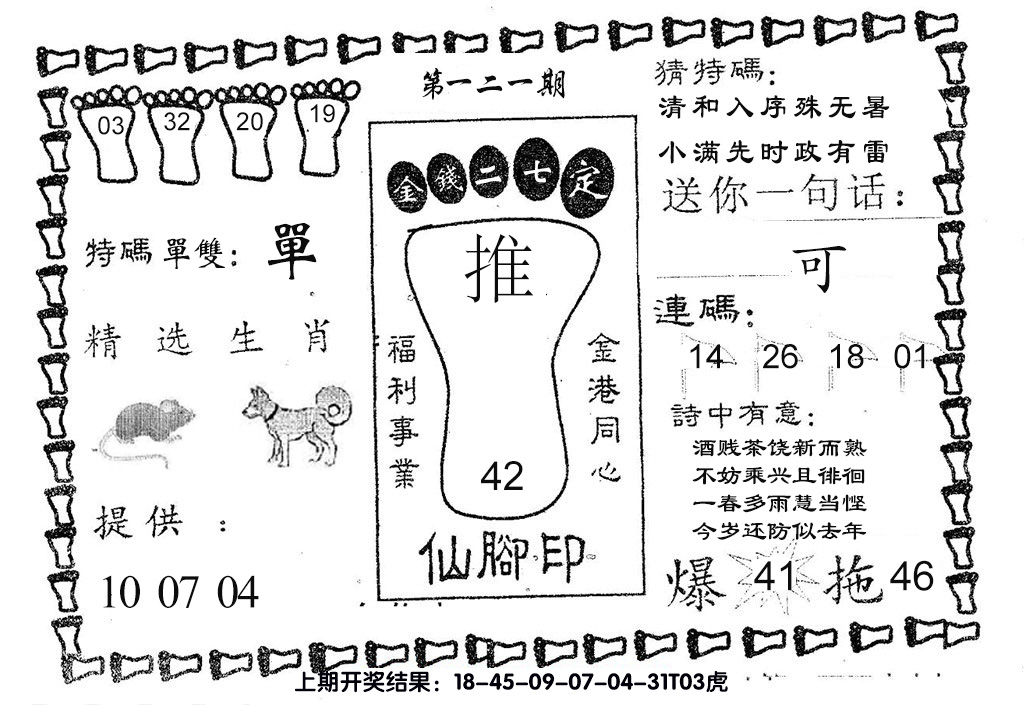 第一二一期
03 32 20 19
特碼單雙：單
精选生肖
提供：
10 07 04
金錢二七定
推
福利事業
金港同心
42
仙腳印
猜特碼：
清和入序殊无暑
小满先时政有雷
送你一句话：
可
連碼：
14 26 18 01
詩中有意：
酒贱茶饶新而熟
不妨乘兴且徘徊
一春多雨慧当悭
今岁还防似去年
爆 41 拖 46
上期开奖结果：18-45-09-07-04-31T03虎